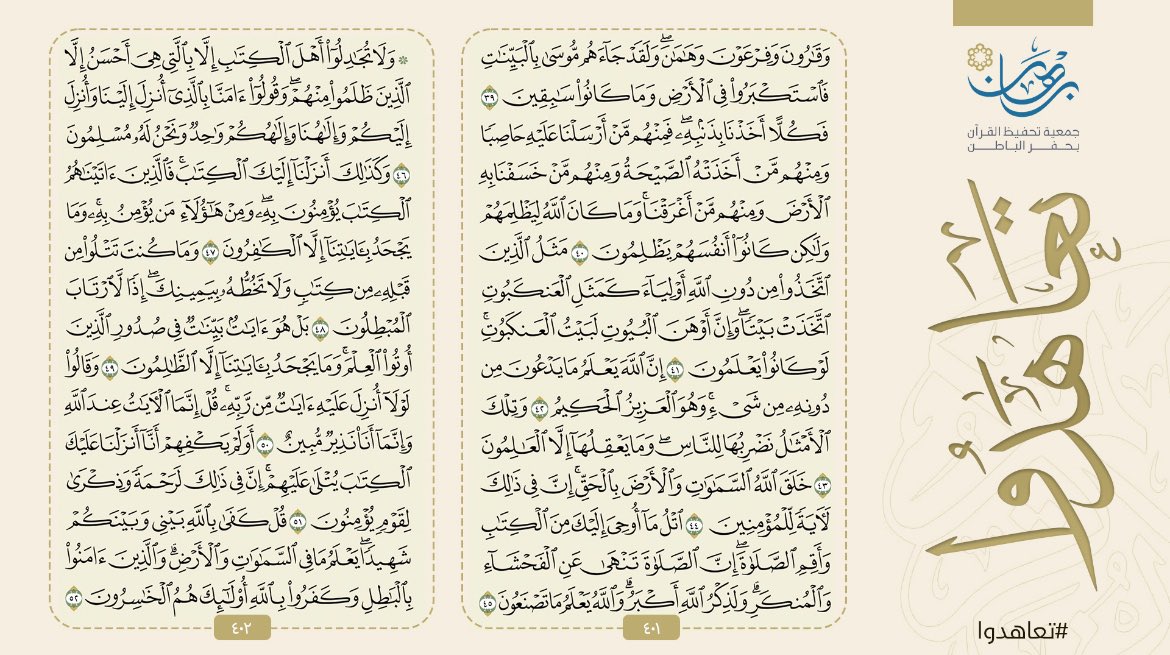 برهان
جمعية تحفيظ القرآن
بحفر الباطن
تعاهدوا
#تعاهدوا
وَقَٰرُونَ وَفِرْعَوْنَ وَهَٰمَٰنَۖ وَلَقَدْ جَآءَهُم مُّوسَىٰ بِٱلْبَيِّنَٰتِ
فَٱسْتَكْبَرُوا۟ فِى ٱلْأَرْضِ وَمَا كَانُوا۟ سَٰبِقِينَ ٣٩
فَكُلًّا أَخَذْنَا بِذَنۢبِهِۦۖ فَمِنْهُم مَّنْ أَرْسَلْنَا عَلَيْهِ حَاصِبًا
وَمِنْهُم مَّنْ أَخَذَتْهُ ٱلصَّيْحَةُ وَمِنْهُم مَّنْ خَسَفْنَا بِهِ
ٱلْأَرْضَ وَمِنْهُم مَّنْ أَغْرَقْنَاۚ وَمَا كَانَ ٱللَّهُ لِيَظْلِمَهُمْ
وَلَٰكِن كَانُوٓا۟ أَنفُسَهُمْ يَظْلِمُونَ ٤٠ مَثَلُ ٱلَّذِينَ
ٱتَّخَذُوا۟ مِن دُونِ ٱللَّهِ أَوْلِيَآءَ كَمَثَلِ ٱلْعَنكَبُوتِ
ٱتَّخَذَتْ بَيْتًاۖ وَإِنَّ أَوْهَنَ ٱلْبُيُوتِ لَبَيْتُ ٱلْعَنكَبُوتِۚ
لَوْ كَانُوا۟ يَعْلَمُونَ ٤١ إِنَّ ٱللَّهَ يَعْلَمُ مَا يَدْعُونَ مِن
دُونِهِۦ مِن شَىْءٍۚ وَهُوَ ٱلْعَزِيزُ ٱلْحَكِيمُ ٤٢ وَتِلْكَ
ٱلْأَمْثَٰلُ نَضْرِبُهَا لِلنَّاسِۖ وَمَا يَعْقِلُهَآ إِلَّا ٱلْعَٰلِمُونَ
٤٣ خَلَقَ ٱللَّهُ ٱلسَّمَٰوَٰتِ وَٱلْأَرْضَ بِٱلْحَقِّۚ إِنَّ فِى ذَٰلِكَ
لَءَايَةً لِّلْمُؤْمِنِينَ ٤٤ ٱتْلُ مَآ أُوحِىَ إِلَيْكَ مِنَ ٱلْكِتَٰبِ
وَأَقِمِ ٱلصَّلَوٰةَۖ إِنَّ ٱلصَّلَوٰةَ تَنْهَىٰ عَنِ ٱلْفَحْشَآءِ
وَٱلْمُنكَرِۗ وَلَذِكْرُ ٱللَّهِ أَكْبَرُۗ وَٱللَّهُ يَعْلَمُ مَا تَصْنَعُونَ ٤٥
٤٠١
۞ وَلَا تُجَٰدِلُوٓا۟ أَهْلَ ٱلْكِتَٰبِ إِلَّا بِٱلَّتِى هِىَ أَحْسَنُ إِلَّا
ٱلَّذِينَ ظَلَمُوا۟ مِنْهُمْۖ وَقُولُوٓا۟ ءَامَنَّا بِٱلَّذِىٓ أُنزِلَ إِلَيْنَا وَأُنزِلَ
إِلَيْكُمْ وَإِلَٰهُنَا وَإِلَٰهُكُمْ وَٰحِدٌ وَنَحْنُ لَهُۥ مُسْلِمُونَ
٤٦ وَكَذَٰلِكَ أَنزَلْنَآ إِلَيْكَ ٱلْكِتَٰبَۚ فَٱلَّذِينَ ءَاتَيْنَٰهُمُ
ٱلْكِتَٰبَ يُؤْمِنُونَ بِهِۦۖ وَمِنْ هَٰٓؤُلَآءِ مَن يُؤْمِنُ بِهِۦۚ وَمَا
يَجْحَدُ بِـَٔايَٰتِنَآ إِلَّا ٱلْكَٰفِرُونَ ٤٧ وَمَا كُنتَ تَتْلُوا۟ مِن
قَبْلِهِۦ مِن كِتَٰبٍ وَلَا تَخُطُّهُۥ بِيَمِينِكَۖ إِذًا لَّٱرْتَابَ
ٱلْمُبْطِلُونَ ٤٨ بَلْ هُوَ ءَايَٰتٌۢ بَيِّنَٰتٌ فِى صُدُورِ ٱلَّذِينَ
أُوتُوا۟ ٱلْعِلْمَۚ وَمَا يَجْحَدُ بِـَٔايَٰتِنَآ إِلَّا ٱلظَّٰلِمُونَ ٤٩ وَقَالُوا۟
لَوْلَآ أُنزِلَ عَلَيْهِ ءَايَٰتٌ مِّن رَّبِّهِۦۚ قُلْ إِنَّمَا ٱلْءَايَٰتُ عِندَ ٱللَّهِ
وَإِنَّمَآ أَنَا۠ نَذِيرٌ مُّبِينٌ ٥٠ أَوَلَمْ يَكْفِهِمْ أَنَّآ أَنزَلْنَا عَلَيْكَ
ٱلْكِتَٰبَ يُتْلَىٰ عَلَيْهِمْۚ إِنَّ فِى ذَٰلِكَ لَرَحْمَةً وَذِكْرَىٰ
لِقَوْمٍ يُؤْمِنُونَ ٥١ قُلْ كَفَىٰ بِٱللَّهِ بَيْنِى وَبَيْنَكُمْ
شَهِيدًاۖ يَعْلَمُ مَا فِى ٱلسَّمَٰوَٰتِ وَٱلْأَرْضِۗ وَٱلَّذِينَ ءَامَنُوا۟
بِٱلْبَٰطِلِ وَكَفَرُوا۟ بِٱللَّهِ أُو۟لَٰٓئِكَ هُمُ ٱلْخَٰسِرُونَ ٥٢
٤٠٢